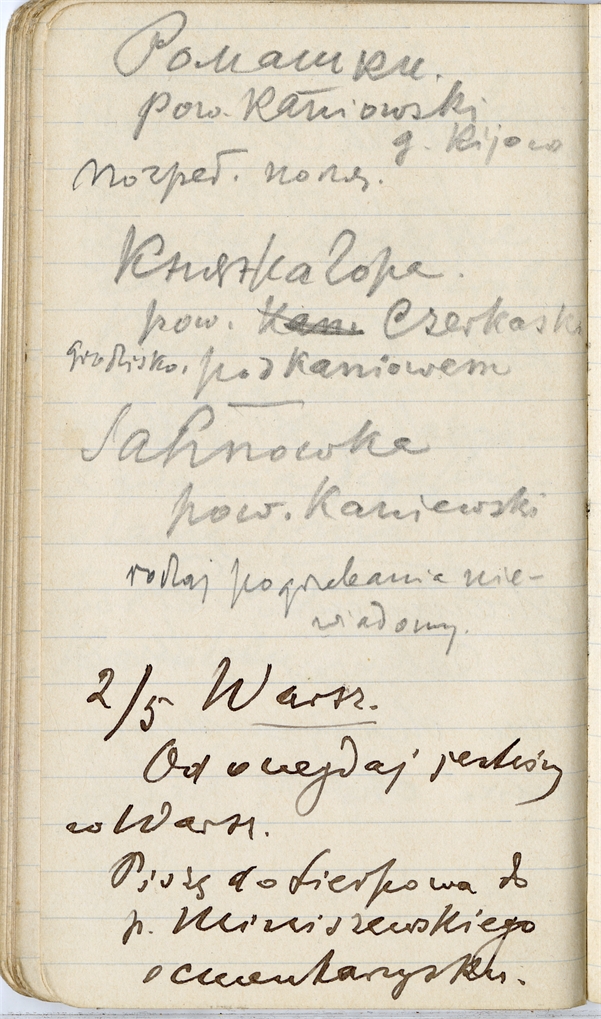 Ромашки.
pow. Kaniowski
g. Kijow
погреб. поля.
Княжа Гора.
pow. Kan. Czerkaski
grodzisko. pod Kaniowem
Sahnowka
pow. Kaniewski
rodzaj pogrzebania nie-
wiadomy.
2/5 Warsz.
Od onegdaj jestem
w Warsz.
Piszę do Sierpowa do
p. Miniszewskiego
o cmentarzysku.